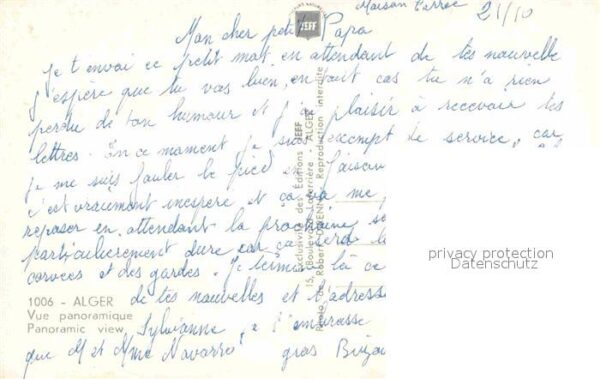 Maison Carrée 21/10
Mon cher petit Papa
Je t'envoi ce petit mot en attendant de tes nouvelle
J'espère que tu vas bien, en tout cas tu n'a rien
perdu de ton humour et j'ai plaisir à recevoir tes
lettres. En ce moment je suis exempt de service, car
je me suis fouler le pied en faisant
c'est vraiment inespéré et ça va me
reposer en attendant la prochaine
particulièrement dure car ça sera
corvées et des gardes. Je termine là ce
de tes nouvelles et l'adresse
Sylvianne, t'embrasse
que M et Mme Navarro gros
1006 - ALGER
Vue panoramique
Panoramic view
JEFF
Exclusivité des Éditions JEFF
15, Boulevard Laferrière - ALGER
Photo de Robert Reproduction interdite
privacy protection
Datenschutz